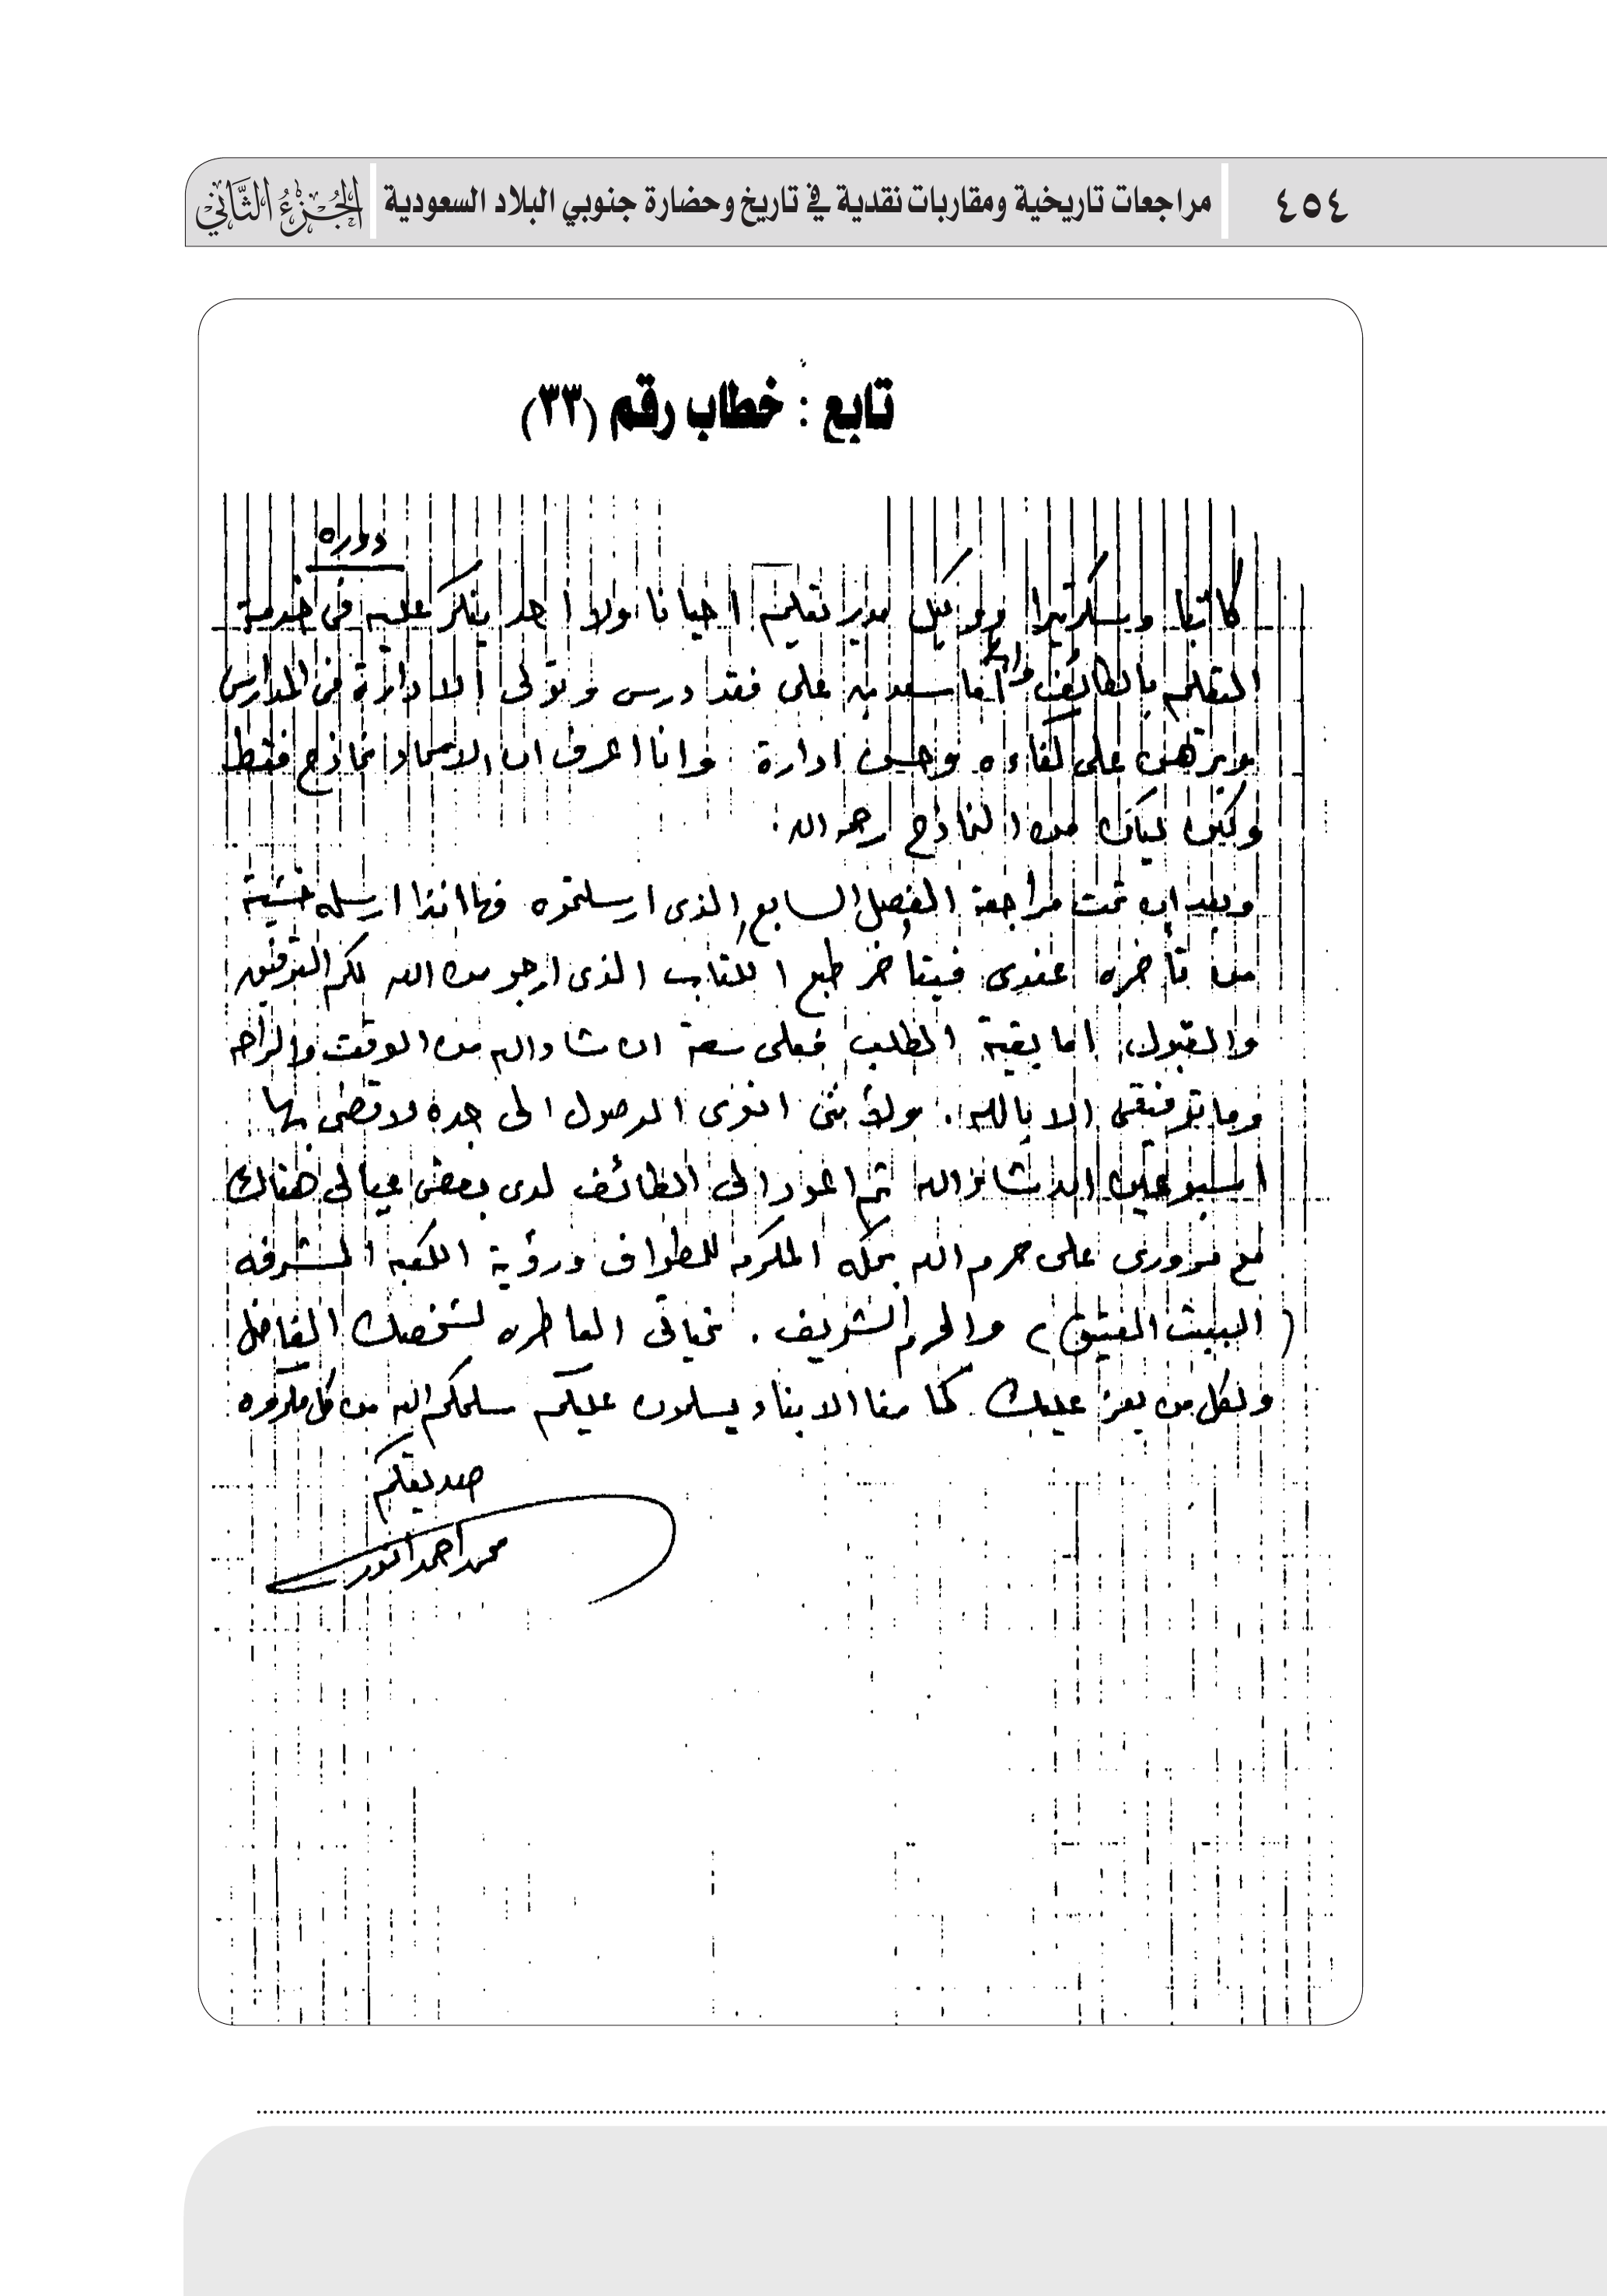 ٤٥٤
مراجعات تاريخية ومقاربات نقدية في تاريخ وحضارة جنوبي البلاد السعودية
الجزء الثاني
تابع : خطاب رقم (٣٣)
دوره
كاتبا وسكرتيرا ووكيل مدير تعليم احيانا ولا أحد ينكر عليه في خدمة
التعليم بالطائف أما سعد بن علي فقد درس وتولى الادارة في المدارس
وبرهن على كفاءه وحسن ادارة وانا اعرف ان الاسماء نماذج فقط
من النماذج رحمه الله.
وبعد ان تمت مراجعة الفصل السابع الذى ارسلتموه فها انذا ارسله خشية
من تأخره عندى فيتأخر طبع الكتاب الذى ارجو من الله لكم التوفيق
والقبول، اما بقية الطلب فعلى سعة ان شاء الله من الوقت والراحه
وما توفيقي الا بالله. ولأننى انوى الوصول الى جده لاقضى بها
اسبوعين ان شاء الله ثم اعود الى الطائف لدى بعض عيالى هناك
مع مرورى على حرم الله بمكه المكرمه للطواف ورؤية الكعبه المشرفه
(البيت العتيق) والحرم الشريف. تحياتى العاطره لشخصك الفاضل
ولكل من يعز عليك كما منا الابناء يسلمون عليكم سلمكم الله من كل مكروه
صديقكم
محمد احمد انور